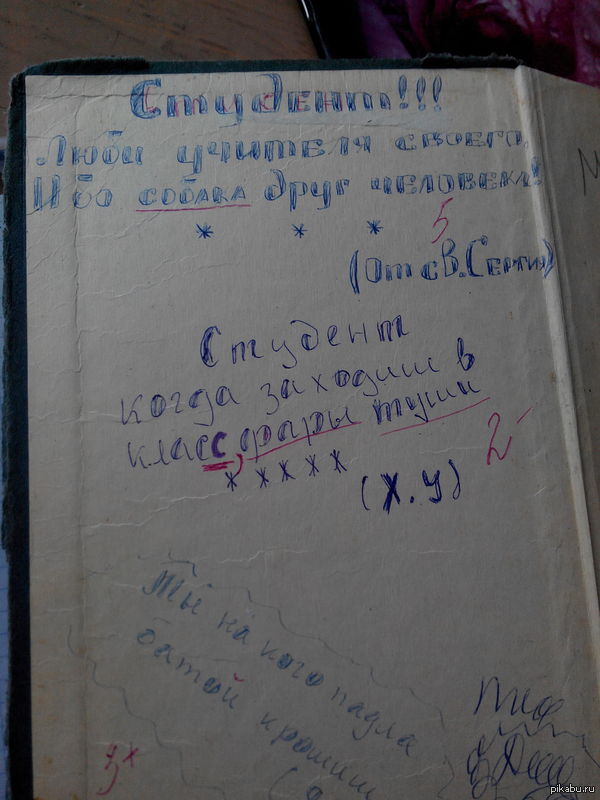 Студент!!!
Люби учителя своего,
Ибо собака друг человека!
* * *
5
(От св. Сергия)
Студент
когда заходиш в
класс, фары туши
2-
* * * * *
(Х.У)
Ты на кого падла
батой крошиш
3*
pikabu.ru